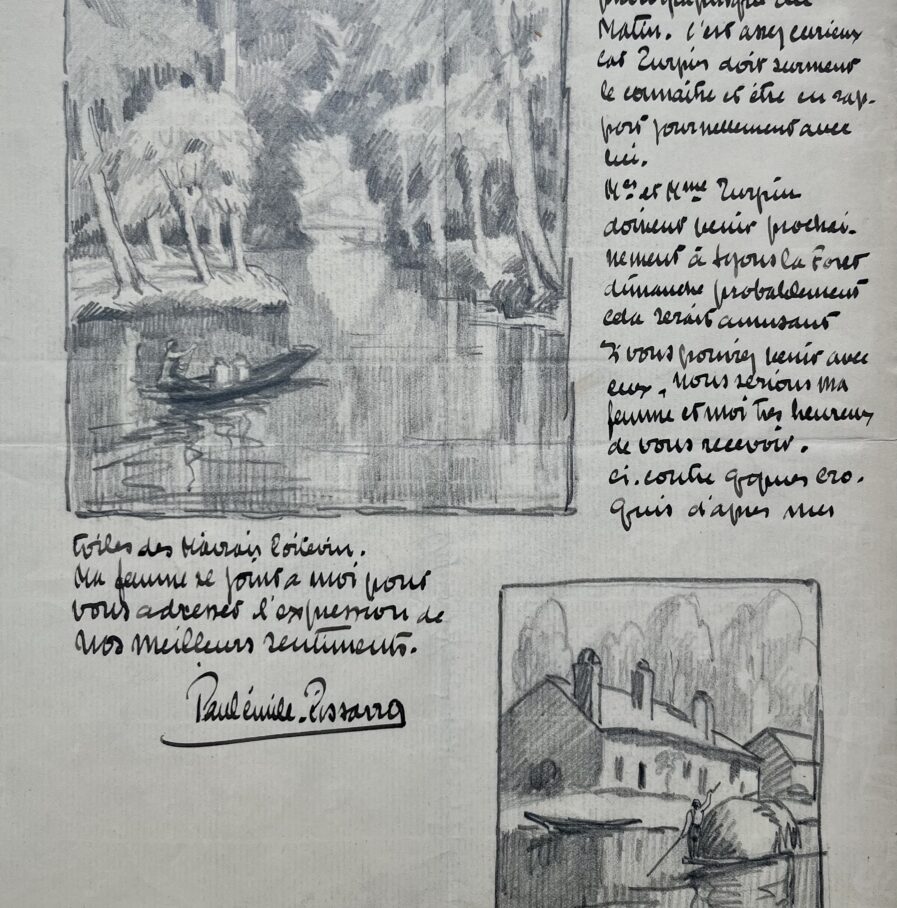 photographique du
Matin. c'est assez curieux
car Turpin doit surement
le connaitre et être en rap-
port journellement avec
lui.
Mr et Mme Turpin
doivent venir prochai-
nement à Lyons la Foret
dimanche probablement
cela serait amusant
si vous pouviez venir avec
eux, nous serions ma
femme et moi très heureux
de vous recevoir.
ci-contre qques cro-
quis d'après mes
toiles des Marais Poitevin.
Ma femme se joint a moi pour
vous adresser l'expression de
nos meilleurs sentiments.
Paulémile-Pissarro